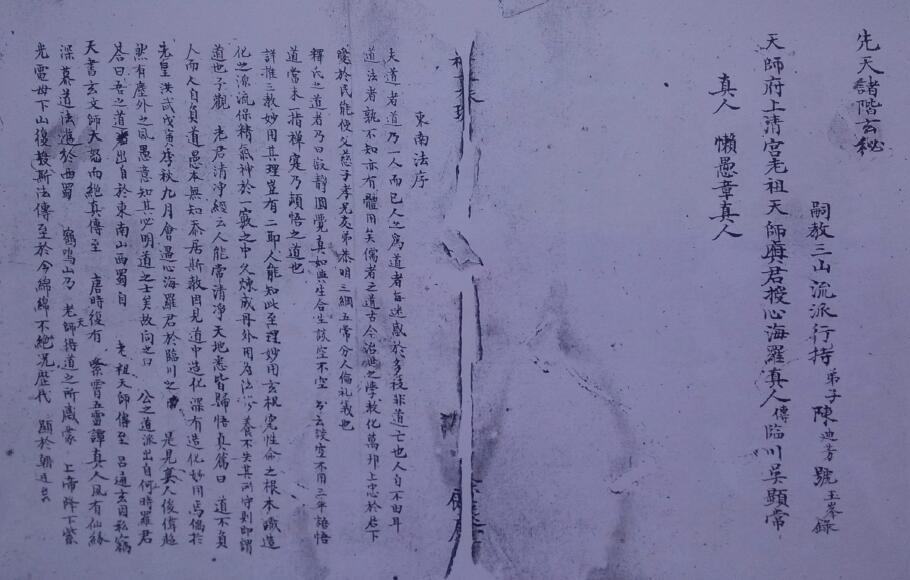 先天諸階玄秘
嗣教三山流派行持弟子陳迪芳號玉峯錄
天師府上清宮老祖天師虞君授心海羅真人傳臨川吳顯常
真人　懶愚章真人
東南法序
夫道者道乃一人而已人之為道者每迷惑於多歧非道亡也人自不由耳
道法者孰不知亦有體用矣儒者之道古今治世之學教化萬邦上忠於君下
愛於民能使父慈子孝兄友弟恭明三綱五常分人倫禮義也
釋氏之道者乃曰寂静圓覺真如與生合生談空不空　談空不用三乘語悟
道當未一指禪定乃頓悟之道也
詳推三教妙用其理豈有二耶人能知此至理妙用玄根究性命之根本識造
化之源流保精氣神於一竅之中久煉成丹外用為法　養不失其所守則即謂
道也予觀　老君清淨經云人能常清淨天地悉皆歸悟真篇曰　道不負
人而人自負道愚本無知忝居斯教因見道中造化深有造化妙用焉偶於
先皇洪武戊寅季秋九月會遇心海羅君於臨川之　是見真人俊偉超
然有塵外之風愚意知其必明道之士矣故向之曰　公之道派出自何時羅君
答曰吾之道出自於東南山西蜀自　老祖天師傳至　呂通玄因私竊
天書玄文師大怒而絕真傳至　唐時復有　紫霄五雷譚真人風有仙緣
深慕道法進於西蜀　鶴鳴山乃　老天師得道之所感蒙　上帝降下紫
光電母下山後教斯法傳至於今綿綿不絕況歷代　顯於朝廷矣